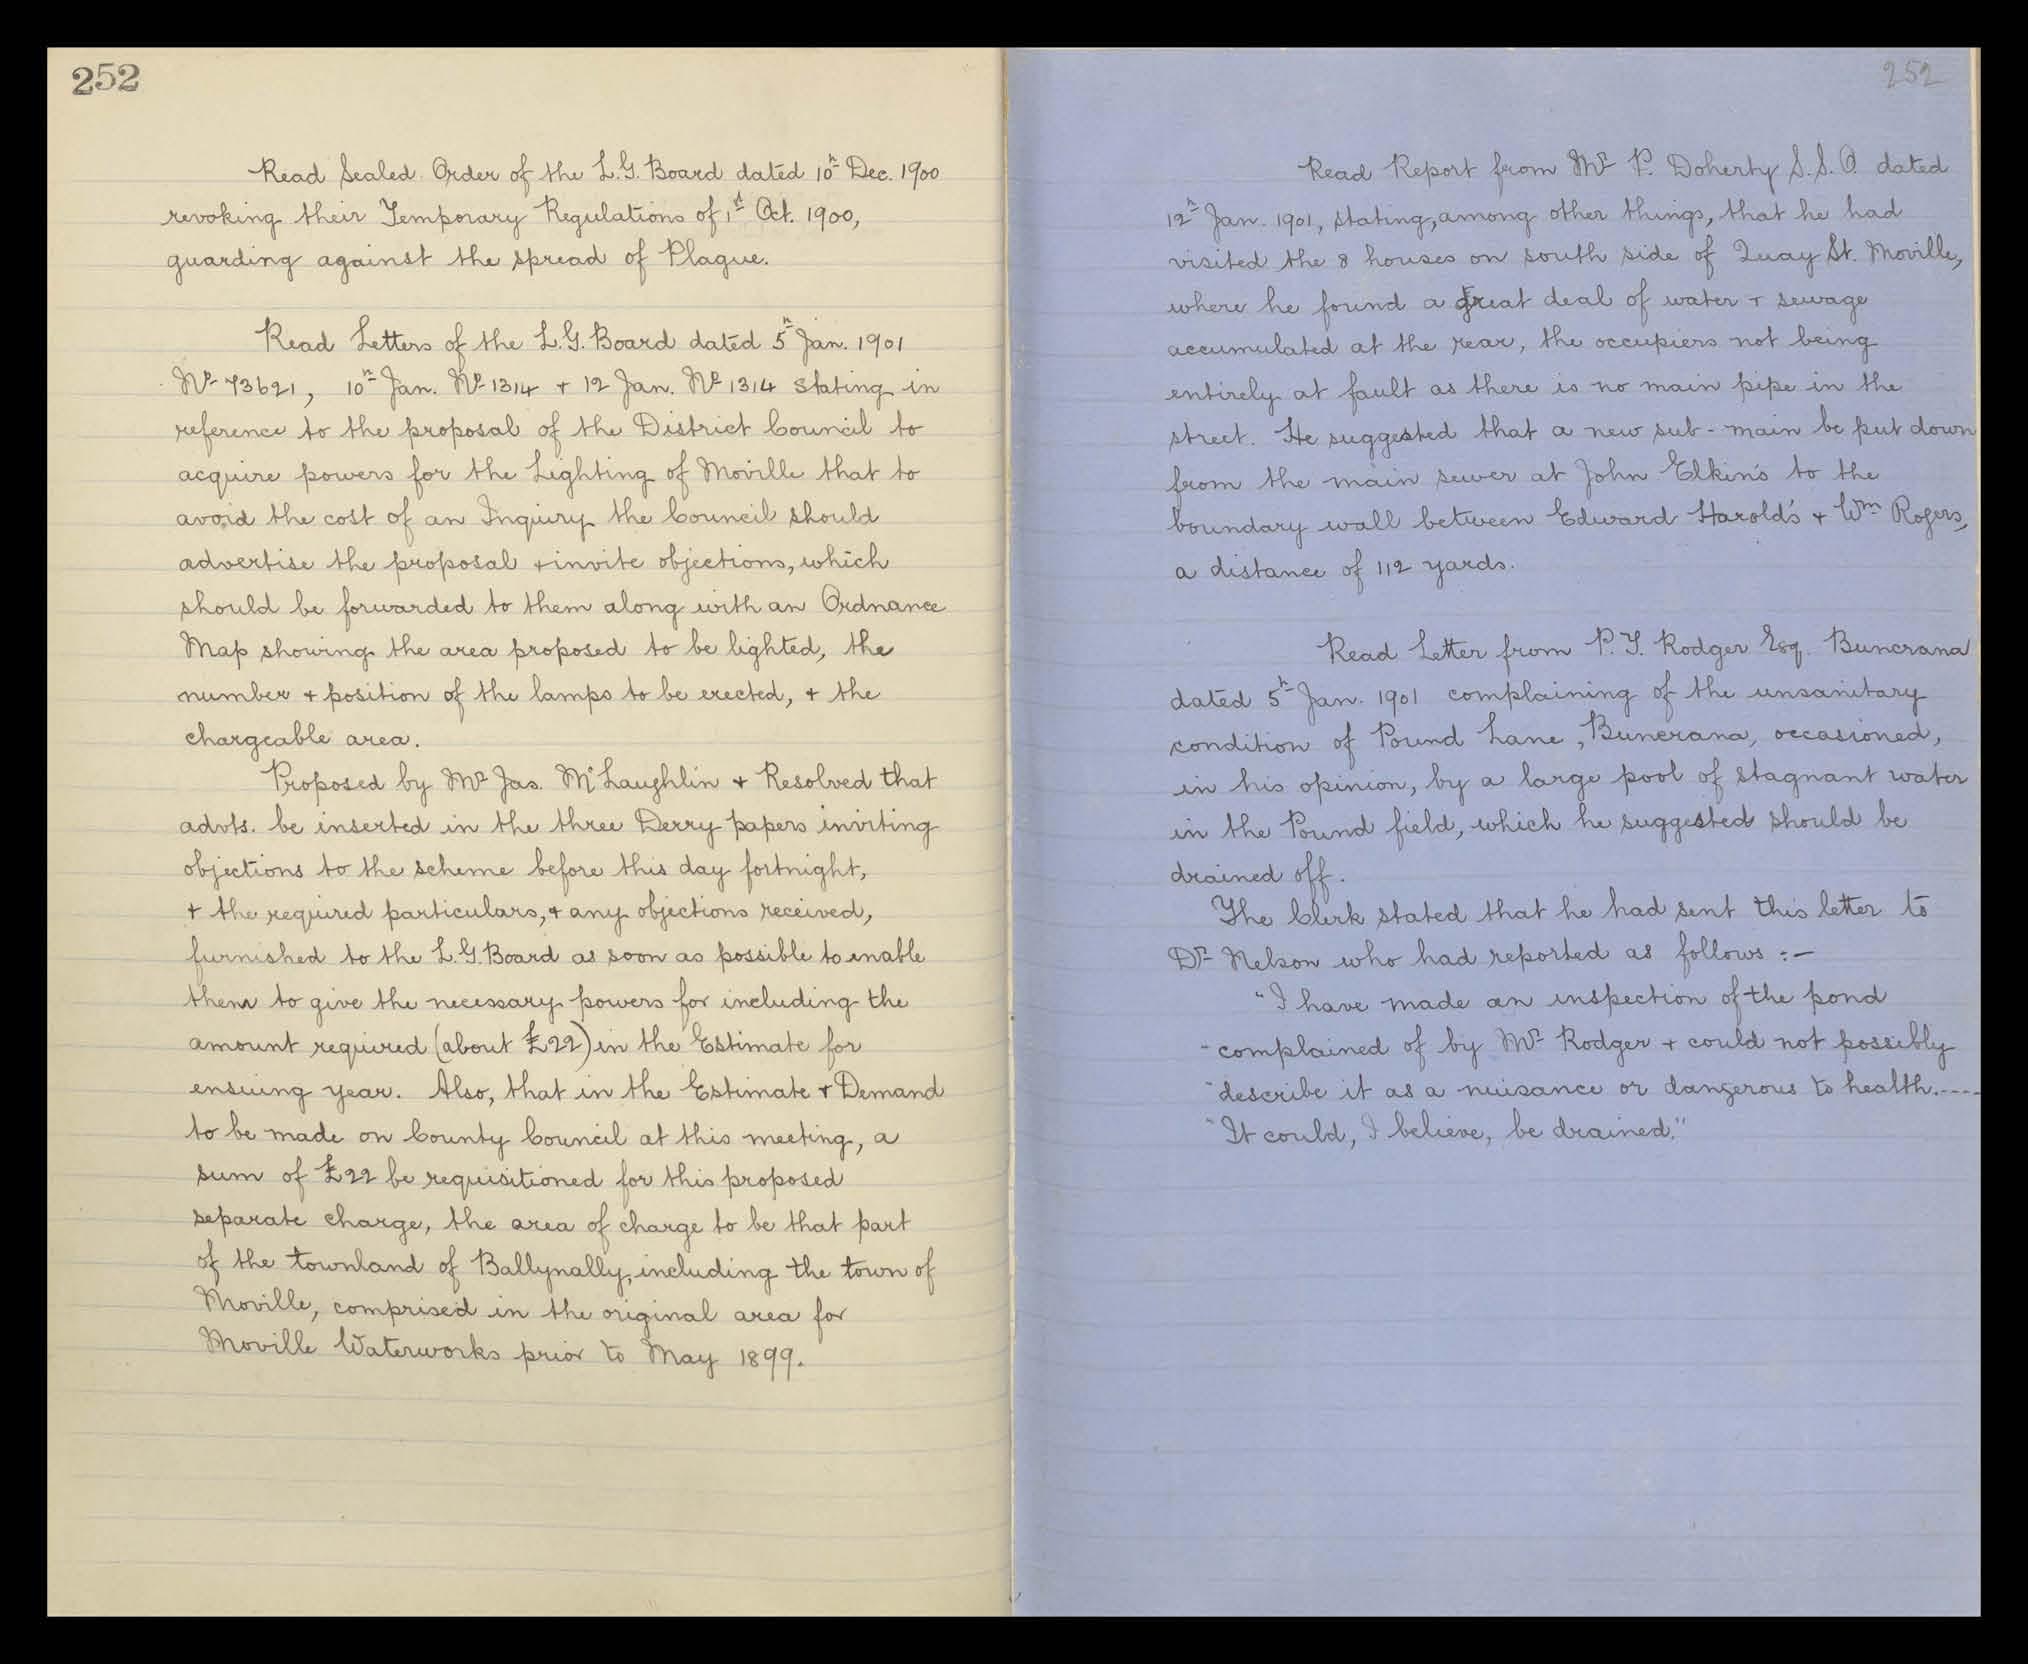 252
Read Sealed Order of the L.G. Board dated 10th Dec. 1900
revoking their Temporary Regulations of 1st Oct. 1900,
guarding against the spread of Plague.
Read Letters of the L.G. Board dated 5th Jan. 1901
No 73621, 10th Jan. No 1314 + 12 Jan. No 1314 stating in
reference to the proposal of the District Council to
acquire powers for the Lighting of Moville that to
avoid the cost of an Inquiry the Council should
advertise the proposal + invite objections, which
should be forwarded to them along with an Ordnance
Map showing the area proposed to be lighted, the
number + position of the lamps to be erected, + the
chargeable area.
Proposed by Mr Jas. McLaughlin + Resolved that
advts. be inserted in the three Derry papers inviting
objections to the scheme before this day fortnight,
+ the required particulars, + any objections received,
furnished to the L.G. Board as soon as possible to enable
them to give the necessary powers for including the
amount required (about £22) in the Estimate for
ensuing year. Also, that in the Estimate + Demand
to be made on County Council at this meeting, a
sum of £22 be requisitioned for this proposed
separate charge, the area of charge to be that part
of the townland of Ballynally, including the town of
Moville, comprised in the original area for
Moville Waterworks prior to May 1899.
252
Read Report from Mr P. Doherty S.S.O. dated
12th Jan. 1901, stating, among other things, that he had
visited the 8 houses on south side of Quay St. Moville,
where he found a great deal of water + sewage
accumulated at the rear, the occupiers not being
entirely at fault as there is no main pipe in the
street. He suggested that a new sub-main be put down
from the main sewer at John Elkin's to the
boundary wall between Edward Harold's + Wm Rogers,
a distance of 112 yards.
Read Letter from P. T. Rodger Esq. Buncrana
dated 5th Jan. 1901 complaining of the unsanitary
condition of Pound Lane, Buncrana, occasioned,
in his opinion, by a large pool of stagnant water
in the Pound field, which he suggested should be
drained off.
The Clerk stated that he had sent this letter to
Dr Nelson who had reported as follows :-
"I have made an inspection of the pond
"complained of by Mr Rodger + could not possibly
"describe it as a nuisance or dangerous to health.----
"It could, I believe, be drained."